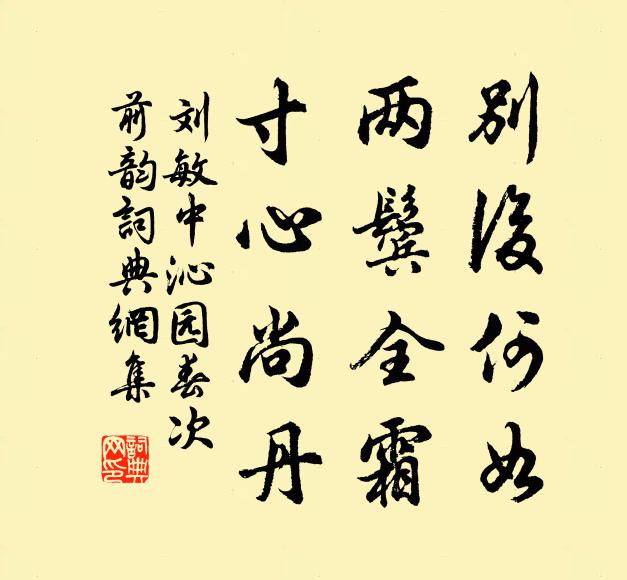 别後何如
两鬓全霜
寸心尚丹
刘敏中沁园春次
前韵詞典網集
詞典
网印